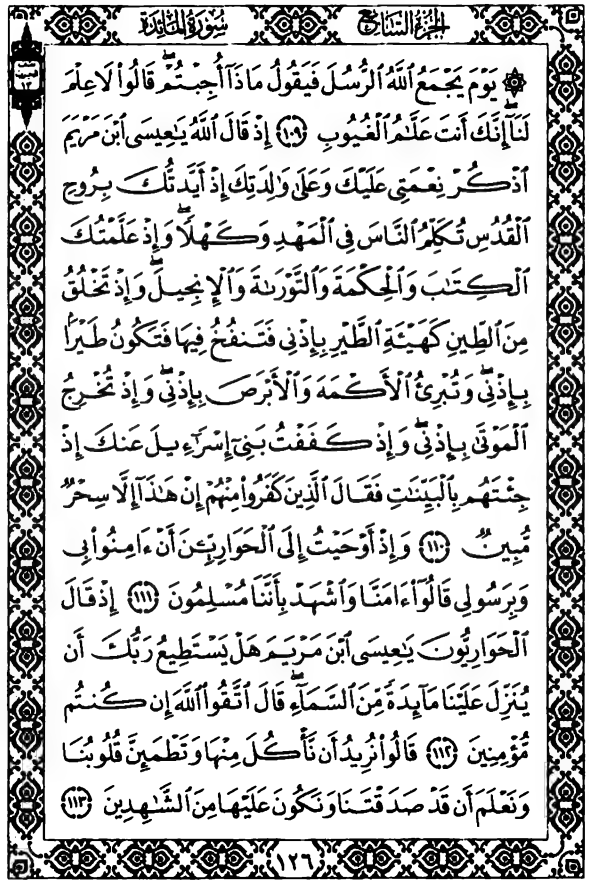 سُورَةُ المَائِدَة
الجُزْءُ السَّابِعُ
۞ يَوْمَ يَجْمَعُ ٱللَّهُ ٱلرُّسُلَ فَيَقُولُ مَاذَآ أُجِبْتُمْۖ قَالُوا۟ لَا عِلْمَ
لَنَآۖ إِنَّكَ أَنتَ عَلَّـٰمُ ٱلْغُيُوبِ ﴿١٠٩﴾ إِذْ قَالَ ٱللَّهُ يَـٰعِيسَى ٱبْنَ مَرْيَمَ
ٱذْكُرْ نِعْمَتِى عَلَيْكَ وَعَلَىٰ وَٰلِدَتِكَ إِذْ أَيَّدتُّكَ بِرُوحِ
ٱلْقُدُسِ تُكَلِّمُ ٱلنَّاسَ فِى ٱلْمَهْدِ وَكَهْلًاۖ وَإِذْ عَلَّمْتُكَ
ٱلْكِتَـٰبَ وَٱلْحِكْمَةَ وَٱلتَّوْرَىٰةَ وَٱلْإِنجِيلَۖ وَإِذْ تَخْلُقُ
مِنَ ٱلطِّينِ كَهَيْـَٔةِ ٱلطَّيْرِ بِإِذْنِى فَتَنفُخُ فِيهَا فَتَكُونُ طَيْرًۢا
بِإِذْنِىۖ وَتُبْرِئُ ٱلْأَكْمَهَ وَٱلْأَبْرَصَ بِإِذْنِىۖ وَإِذْ تُخْرِجُ
ٱلْمَوْتَىٰ بِإِذْنِىۖ وَإِذْ كَفَفْتُ بَنِىٓ إِسْرَٰٓءِيلَ عَنكَ إِذْ
جِئْتَهُم بِٱلْبَيِّنَـٰتِ فَقَالَ ٱلَّذِينَ كَفَرُوا۟ مِنْهُمْ إِنْ هَـٰذَآ إِلَّا سِحْرٌ
مُّبِينٌ ﴿١١٠﴾ وَإِذْ أَوْحَيْتُ إِلَى ٱلْحَوَارِيِّـۧنَ أَنْ ءَامِنُوا۟ بِى
وَبِرَسُولِى قَالُوٓا۟ ءَامَنَّا وَٱشْهَدْ بِأَنَّنَا مُسْلِمُونَ ﴿١١١﴾ إِذْ قَالَ
ٱلْحَوَارِيُّونَ يَـٰعِيسَى ٱبْنَ مَرْيَمَ هَلْ يَسْتَطِيعُ رَبُّكَ أَن
يُنَزِّلَ عَلَيْنَا مَآئِدَةً مِّنَ ٱلسَّمَآءِۖ قَالَ ٱتَّقُوا۟ ٱللَّهَ إِن كُنتُم
مُّؤْمِنِينَ ﴿١١٢﴾ قَالُوا۟ نُرِيدُ أَن نَّأْكُلَ مِنْهَا وَتَطْمَئِنَّ قُلُوبُنَا
وَنَعْلَمَ أَن قَدْ صَدَقْتَنَا وَنَكُونَ عَلَيْهَا مِنَ ٱلشَّـٰهِدِينَ ﴿١١٣﴾
١٢٦